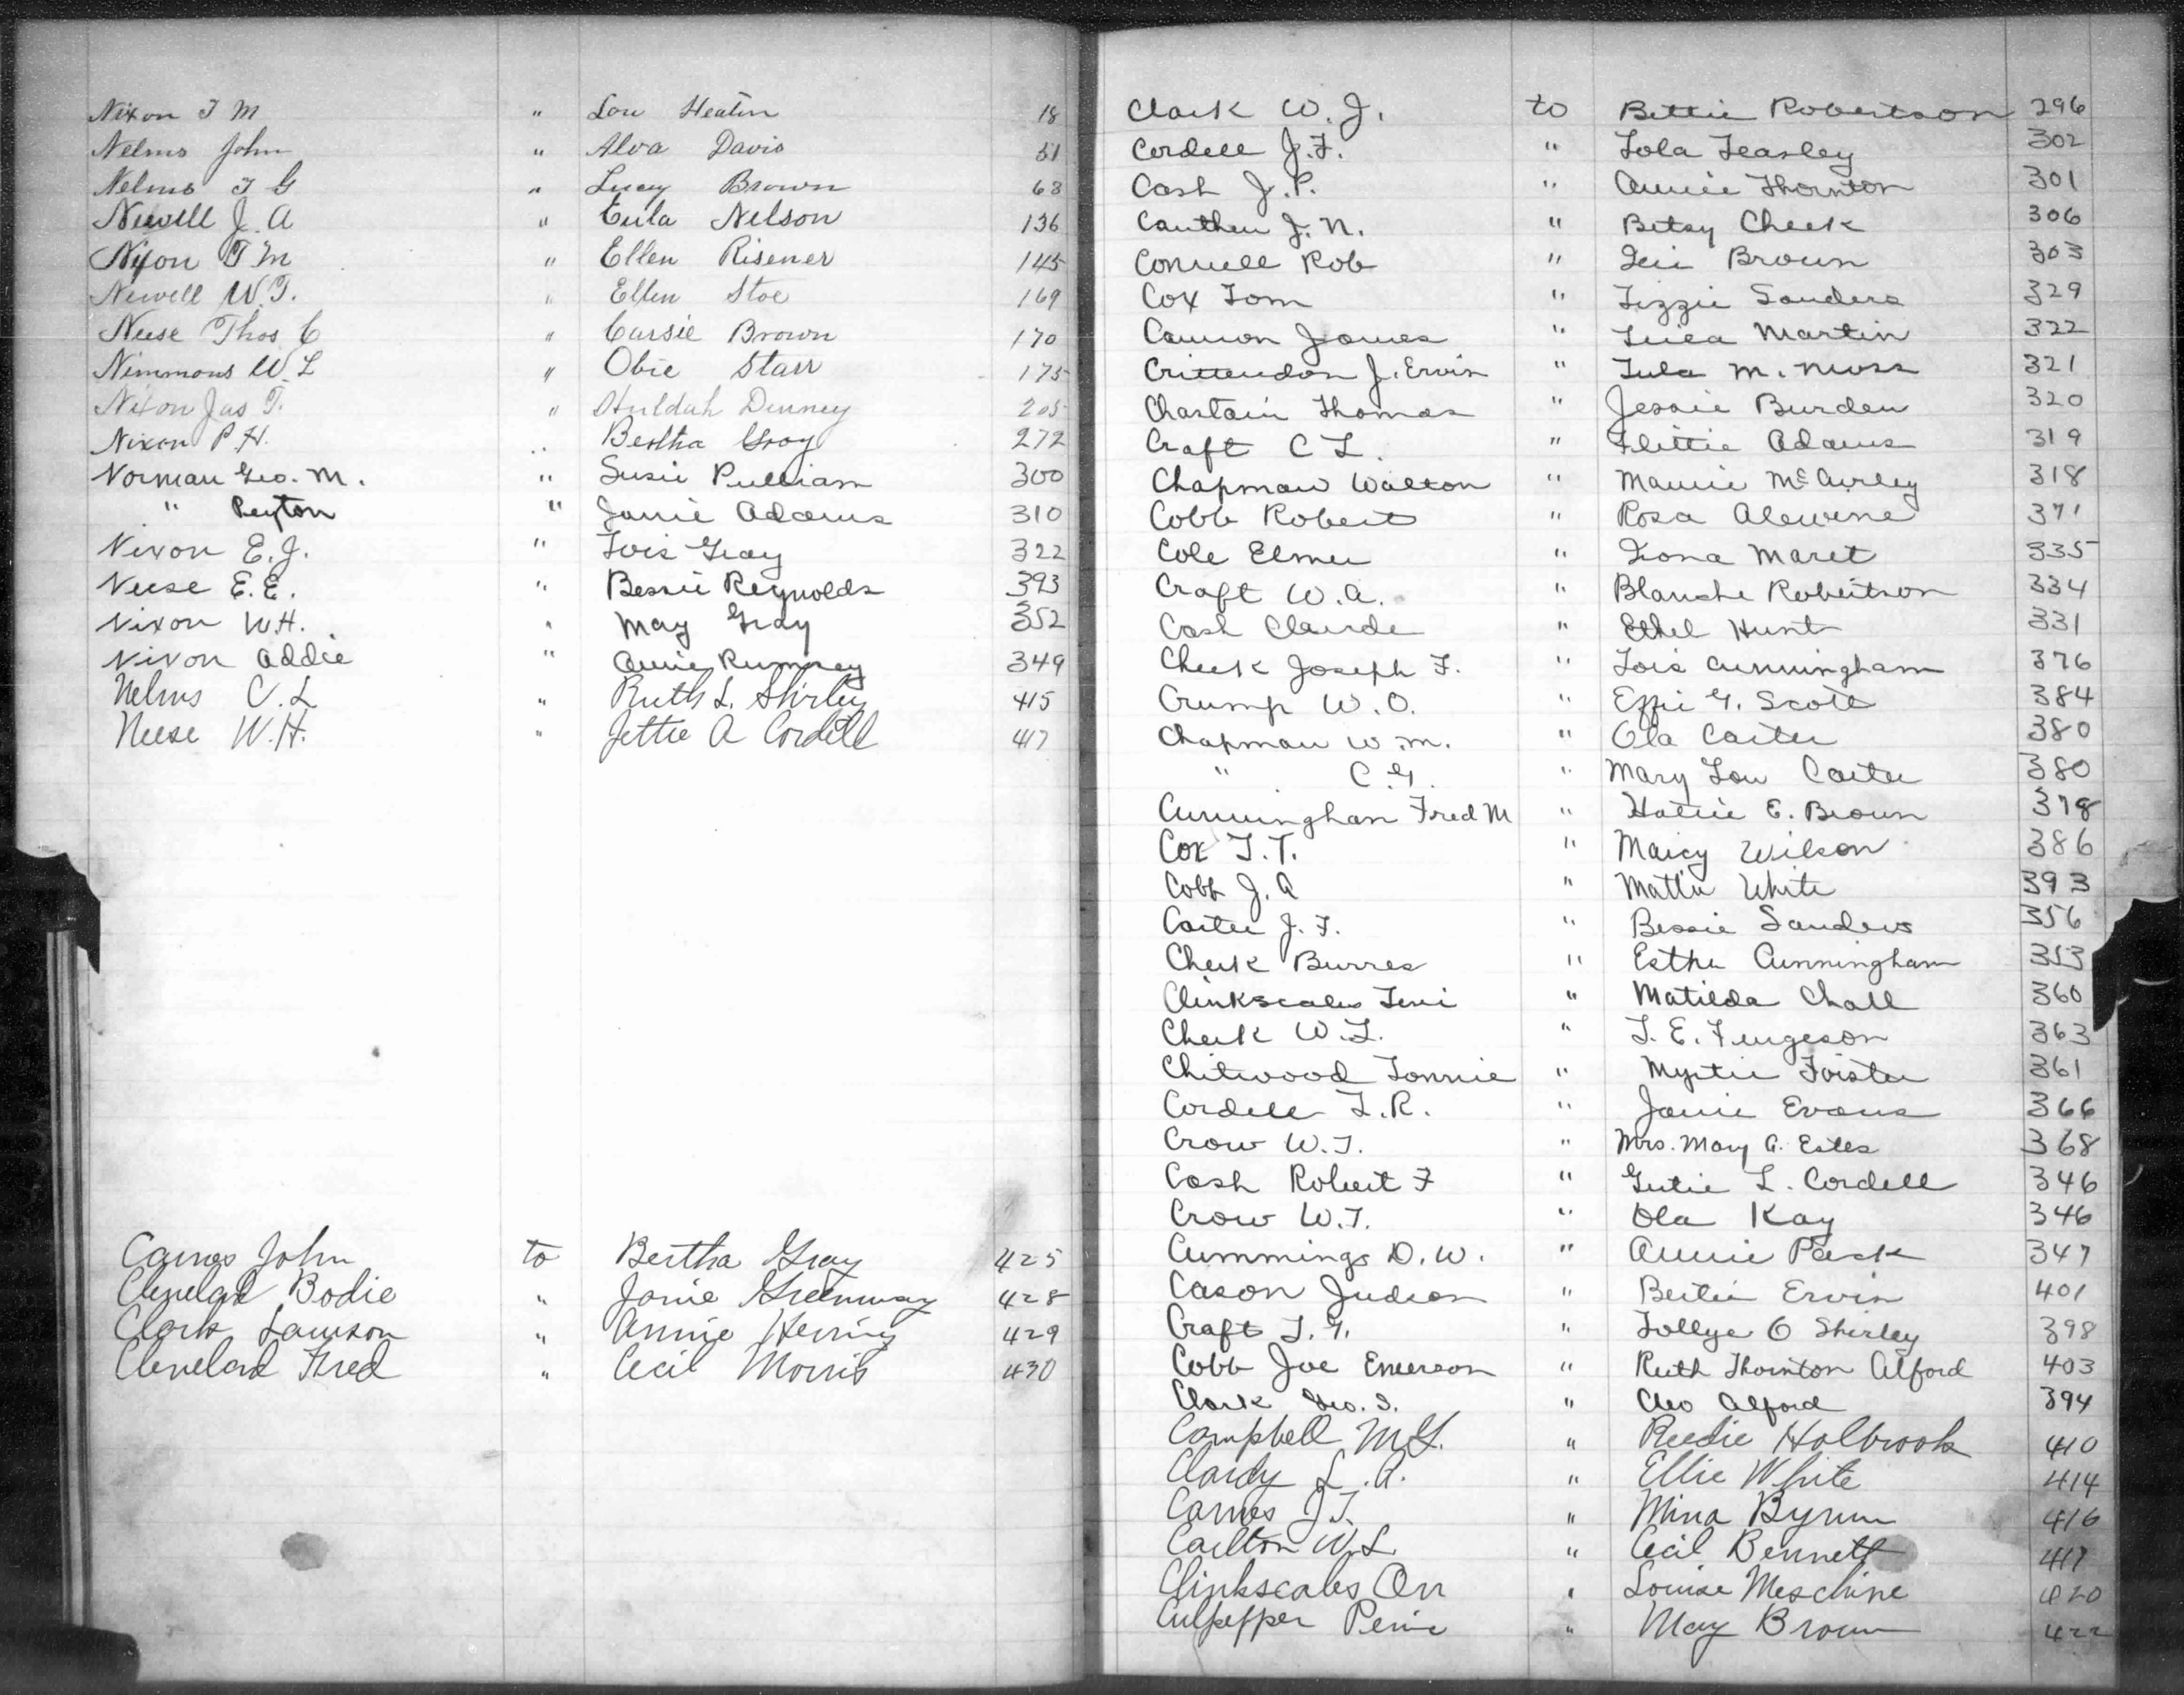 Nixon T M " Lou Heaton 18
Nelms John " Alva Davis 51
Nelms T G " Lucy Brown 68
Newell J. A " Eula Nelson 136
Nixon T M " Ellen Risener 145
Newell W. T. " Ellen Stoe 169
Neese Thos C " Carsie Brown 170
Nimmons W. L " Obie Starr 175
Nixon Jas T. " Huldah Denney 205
Nixon P. H. " Bertha Gray 272
Norman Geo. M. " Susie Pulliam 300
" Peyton " Janie Adams 310
Nixon E. J. " Lois Gray 322
Neese E. E. " Bessie Reynolds 393
Nixon W. H. " May Gray 352
Nixon Addie " Annie Rumsey 349
Nelms C. L " Ruth L. Shirley 415
Neese W. H. " Jettie A Cordell 417
Carnes John to Bertha Gray 425
Cleveland Bodie " Janie Greenway 428
Clark Lawson " Annie Herring 429
Cleveland Fred " Cecil Morris 430
Clark W. J. to Bettie Robertson 296
Cordell J. F. " Lola Teasley 302
Cash J. P. " Annie Thornton 301
Cauthen J. N. " Betsy Cheek 306
Conwell Rob " Brown 303
Cox Tom " Lizzie Sanders 329
Cannon James " Martin 322
Crittendon J. Ervin " Lula M. Moss 321
Chastain Thomas " Jessie Burden 320
Craft C L. " Flittie Adams 319
Chapman Walton " Mamie McCurley 318
Cobb Robert " Rosa Alewine 371
Cole Elmer " Iona Maret 335
Craft W. A. " Blanche Robertson 334
Cash Claude " Ethel Hunt 331
Cheek Joseph F. " Lois Cunningham 376
Crump W. O. " Effie G. Scott 384
Chapman W. M. " Ola Carter 380
" C. G. " Mary Lou Carter 380
Cunningham Fred M " Hattie E. Brown 378
Cox T. T. " Maicy Wilson 386
Cobb J. A " Mattie White 393
Carter J. F. " Bessie Sanders 356
Cheek Burres " Esther Cunningham 353
Clinkscales " Matilda Chall 360
Cheek W. L. " L. E. Furgeson 363
Chitwood Lonnie " Myrtie Foister 361
Cordell L. R. " Janie Evans 366
Crow W. T. " Mrs. Mary A. Estes 368
Cash Robert F " Gutie L. Cordell 346
Crow W. T. " Ola Kay 346
Cummings D. W. " Annie Pack 347
Cason Judson " Bertie Ervin 401
Craft L. G. " Lollye O Shirley 398
Cobb Joe Emerson " Ruth Thornton Alford 403
Clark Geo. S. " Cleo Alford 394
Campbell M. G. " Reedie Holbrook 410
Clardy L. A. " Ellie White 414
Carnes J. T. " Mina Bynum 416
Carlton W. L. " Cecil Bennett 417
Clinkscales Orr " Louise Meschine 420
Culpepper " May Brown 422